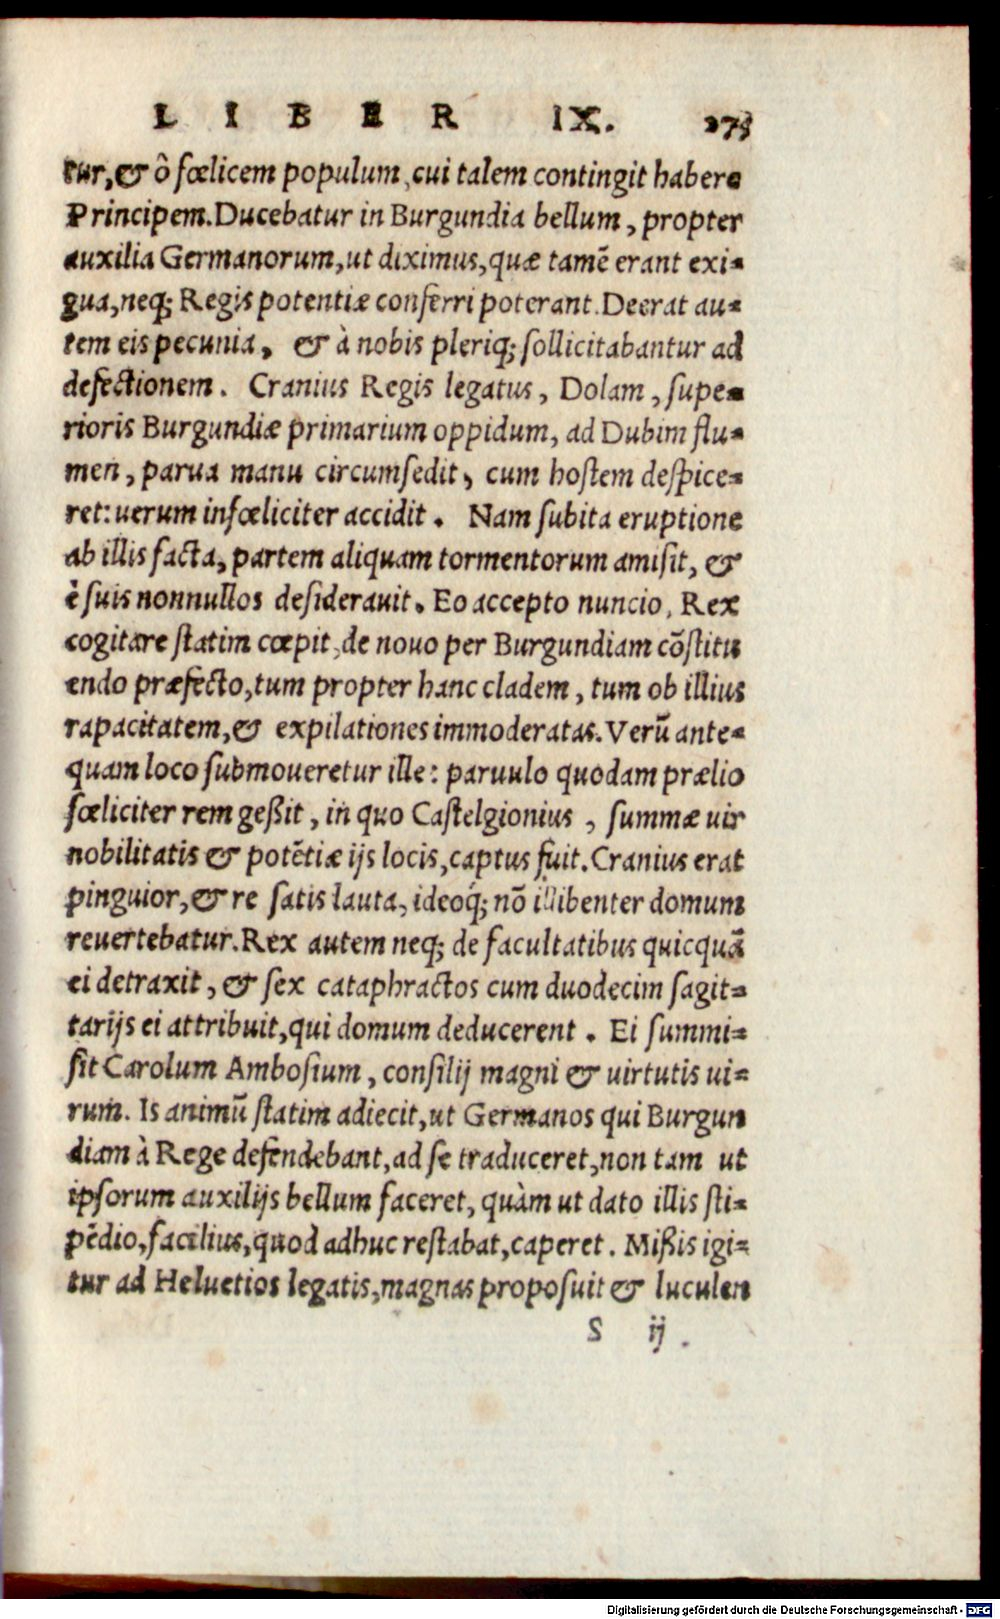 LIBER IX. 275
tur, & ô fœlicem populum, cui talem contingit habere
Principem. Ducebatur in Burgundia bellum, propter
auxilia Germanorum, ut diximus, quæ tamē erant exi=
gua, neq; Regis potentiæ conferri poterant. Deerat au=
tem eis pecunia, & à nobis pleriq; sollicitabantur ad
defectionem. Cranius Regis legatus, Dolam, supe=
rioris Burgundiæ primarium oppidum, ad Dubim flu=
men, parua manu circumsedit, cum hostem despice=
ret: uerum infœliciter accidit. Nam subita eruptione
ab illis facta, partem aliquam tormentorum amisit, &
è suis nonnullos desiderauit. Eo accepto nuncio, Rex
cogitare statim cœpit, de nouo per Burgundiam cōstitu
endo præfecto, tum propter hanc cladem, tum ob illius
rapacitatem, & expilationes immoderatas. Verū ante=
quam loco submoueretur ille: paruulo quodam prælio
fœliciter rem geßit, in quo Castelgionius, summæ uir
nobilitatis & potētiæ ijs locis, captus fuit. Cranius erat
pinguior, & re satis lauta, ideoq́; nō illibenter domum
reuertebatur. Rex autem neq; de facultatibus quicquā
ei detraxit, & sex cataphractos cum duodecim sagit=
tarijs ei attribuit, qui domum deducerent. Ei summi=
sit Carolum Ambosium, consilij magni & uirtutis ui=
rum. Is animū statim adiecit, ut Germanos qui Burgun
diam à Rege defendebant, ad se traduceret, non tam ut
ipsorum auxilijs bellum faceret, quàm ut dato illis sti=
pēdio, facilius, quod adhuc restabat, caperet. Mißis igi=
tur ad Heluetios legatis, magnas proposuit & luculen
S ij.
Digitalisierung gefördert durch die Deutsche Forschungsgemeinschaft - DFG